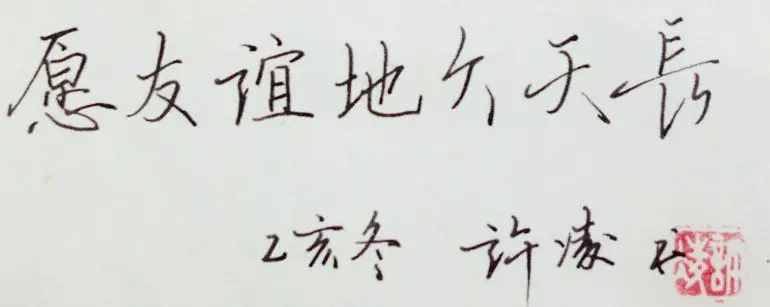 愿友谊地久天長
乙亥冬 許